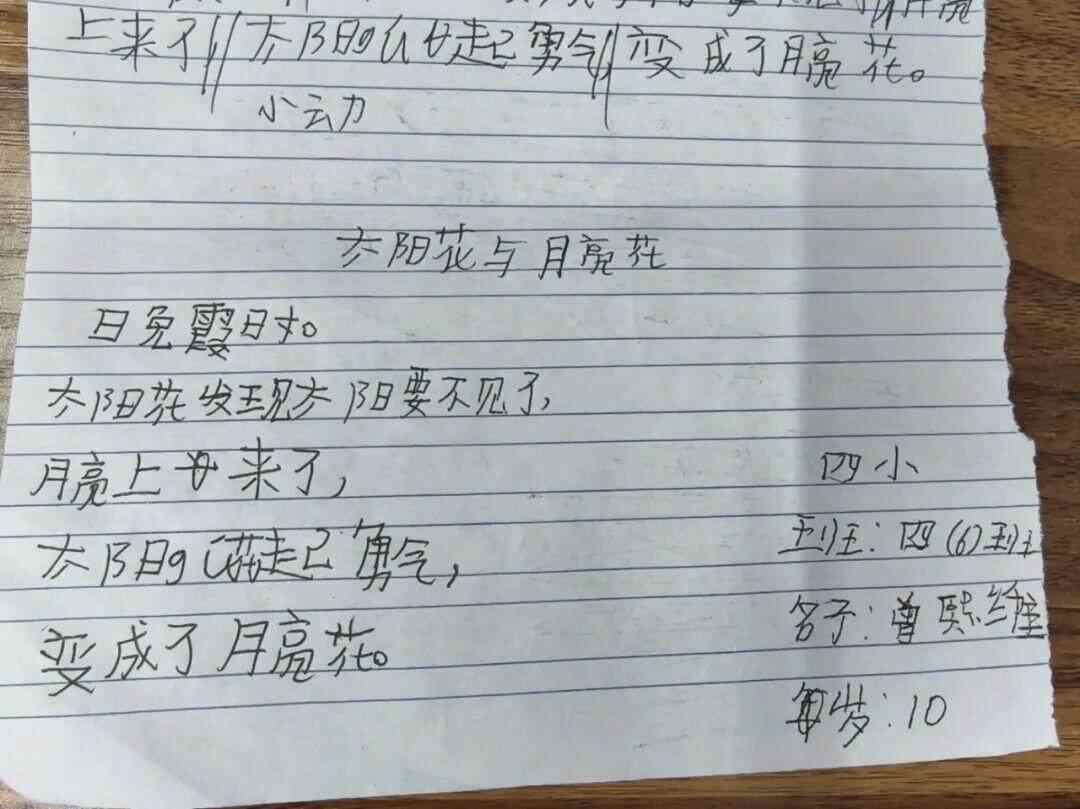 上来了// 太阳 起勇气// 变成了月亮花。
小云力
太阳花与月亮花
晚霞时。
太阳花发现太阳要不见了,
月亮上 来了,
四小
太阳 起勇气,
班:四(6)班
名子:曾熙维
变成了月亮花。
岁:10